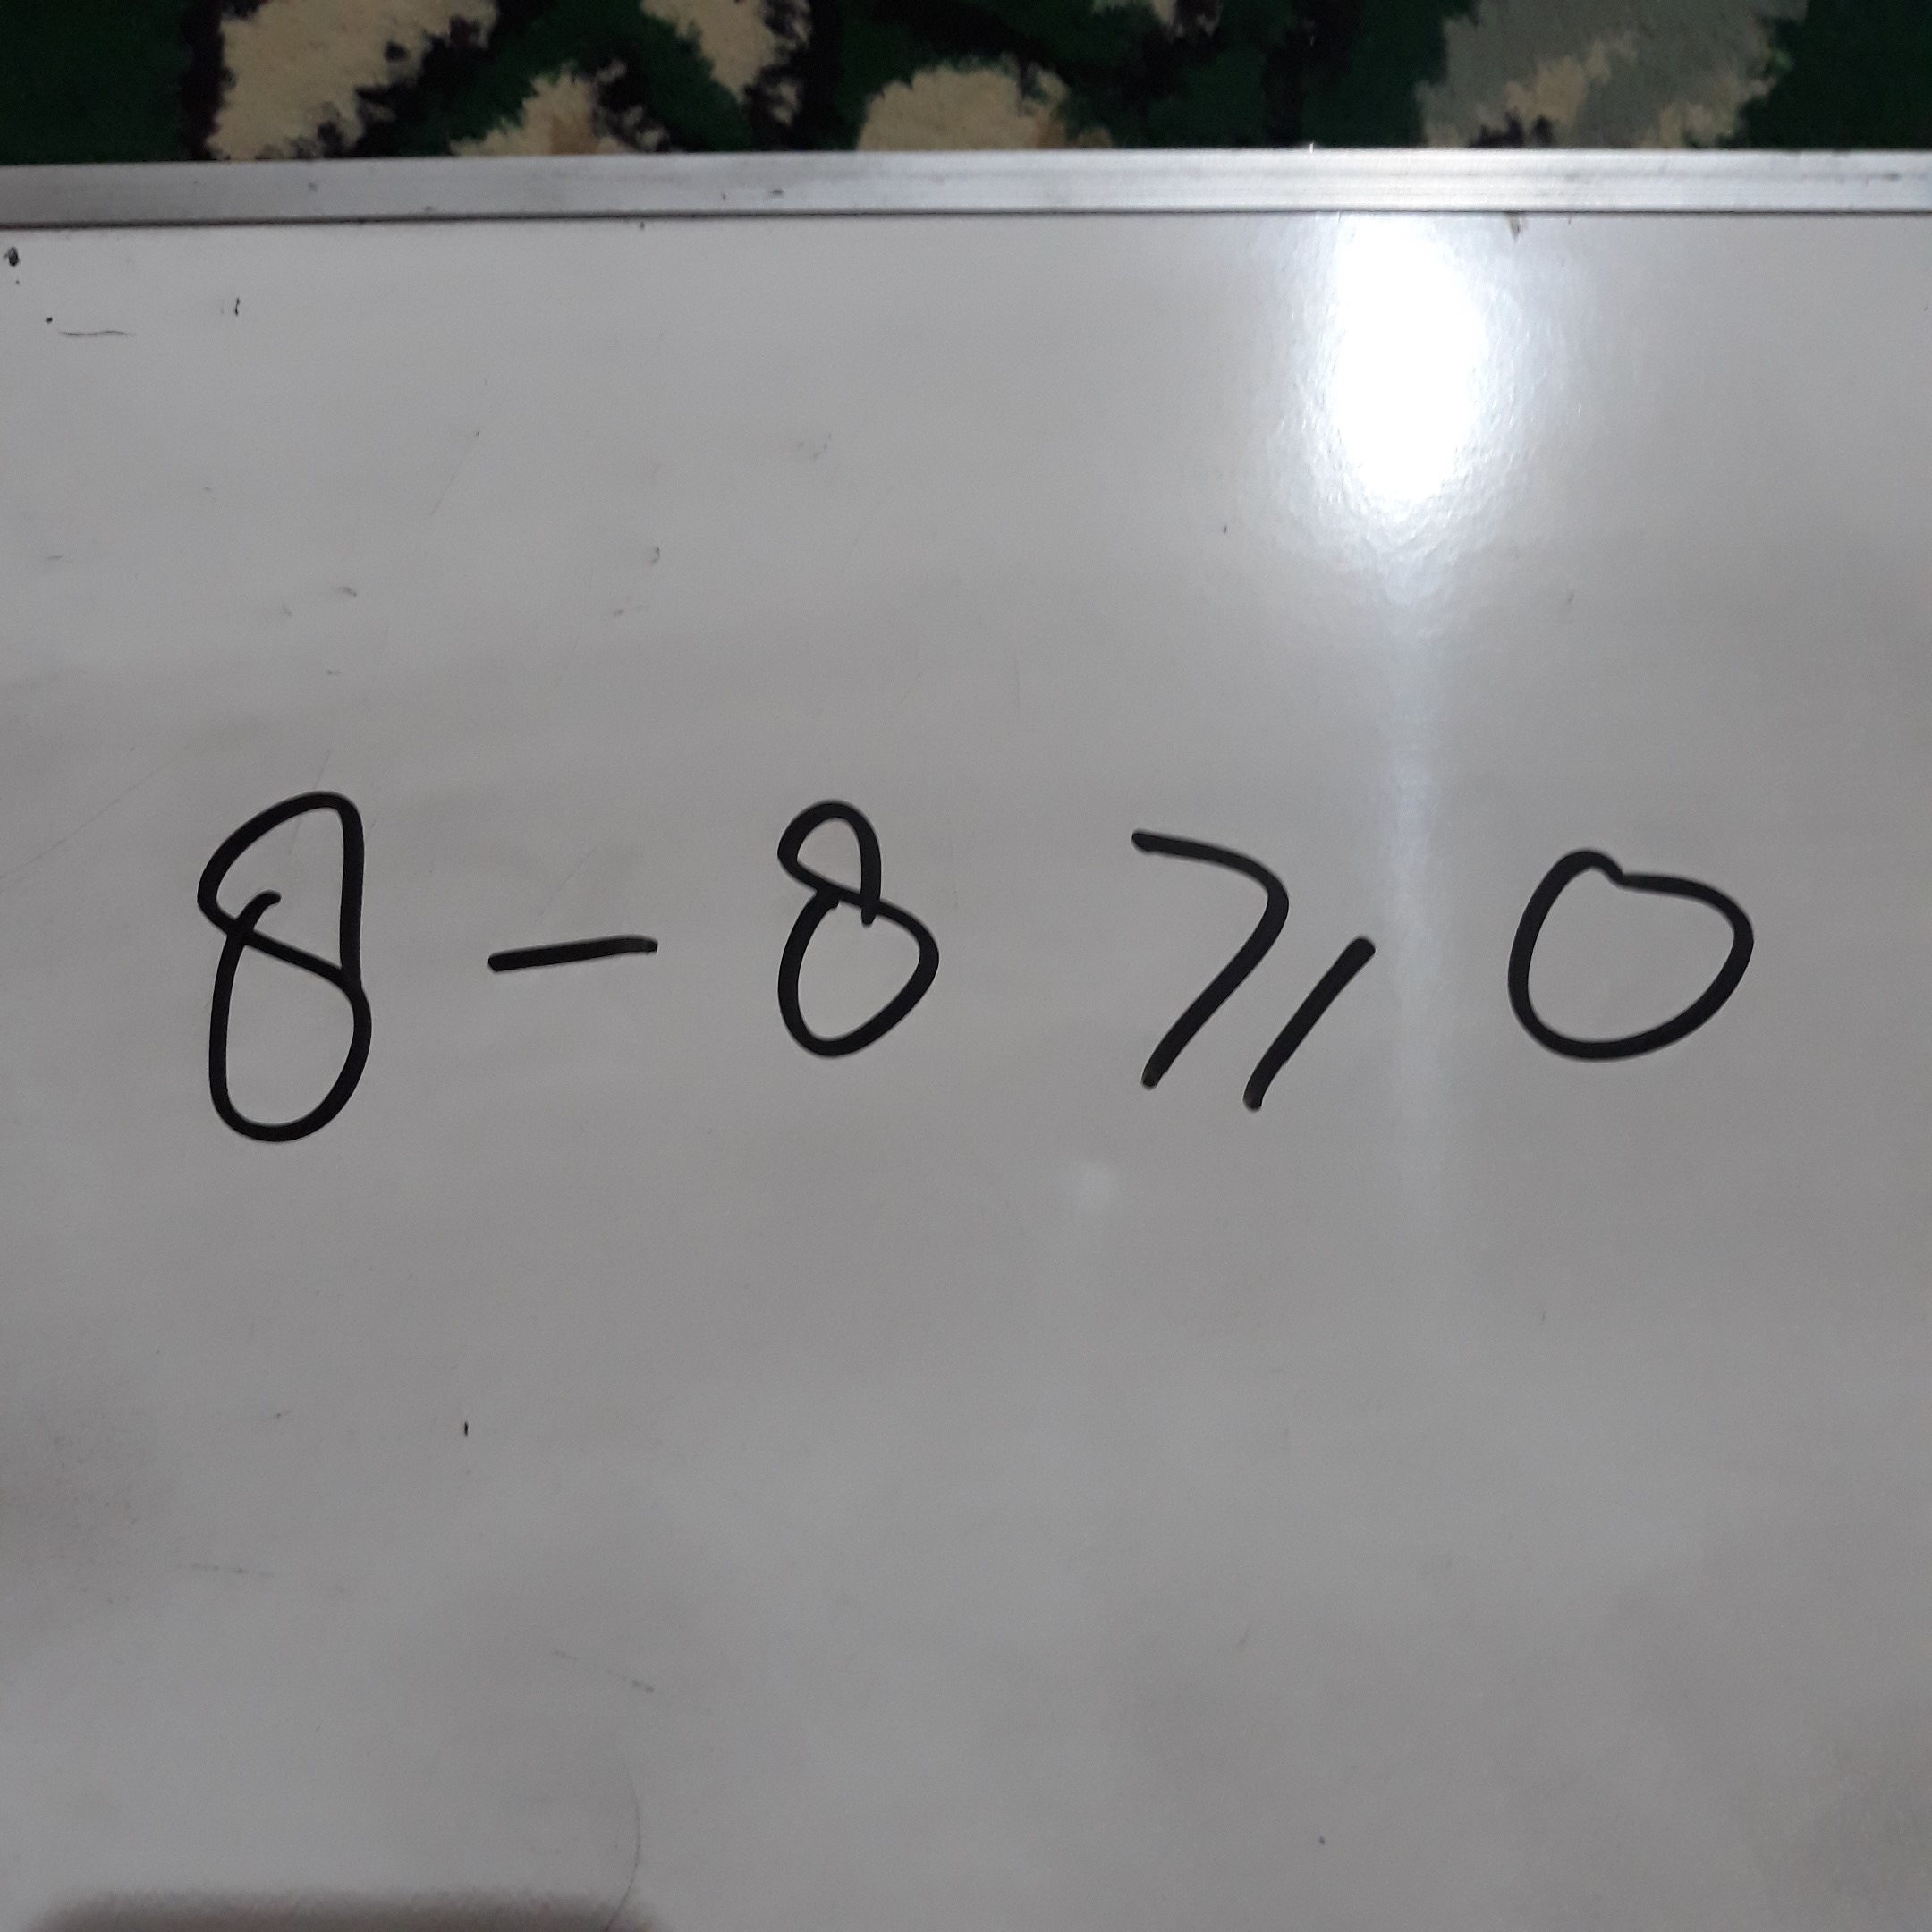 8 - 8 ⩾ 0